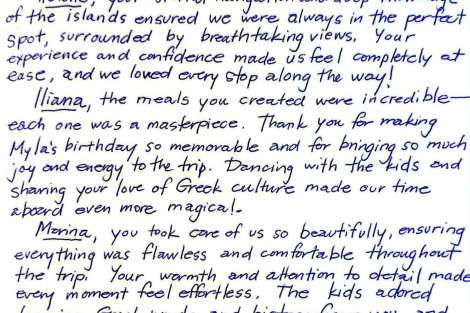 of the islands ensured we were always in the perfect
spot, surrounded by breathtaking views. Your
experience and confidence made us feel completely at
ease, and we loved every stop along the way!
Iliana, the meals you created were incredible—
each one was a masterpiece. Thank you for making
Myla's birthday so memorable and for bringing so much
joy and energy to the trip. Dancing with the kids and
sharing your love of Greek culture made our time
aboard even more magical.
Marina, you took care of us so beautifully, ensuring
everything was flawless and comfortable throughout
the trip. Your warmth and attention to detail made
every moment feel effortless. The kids adored